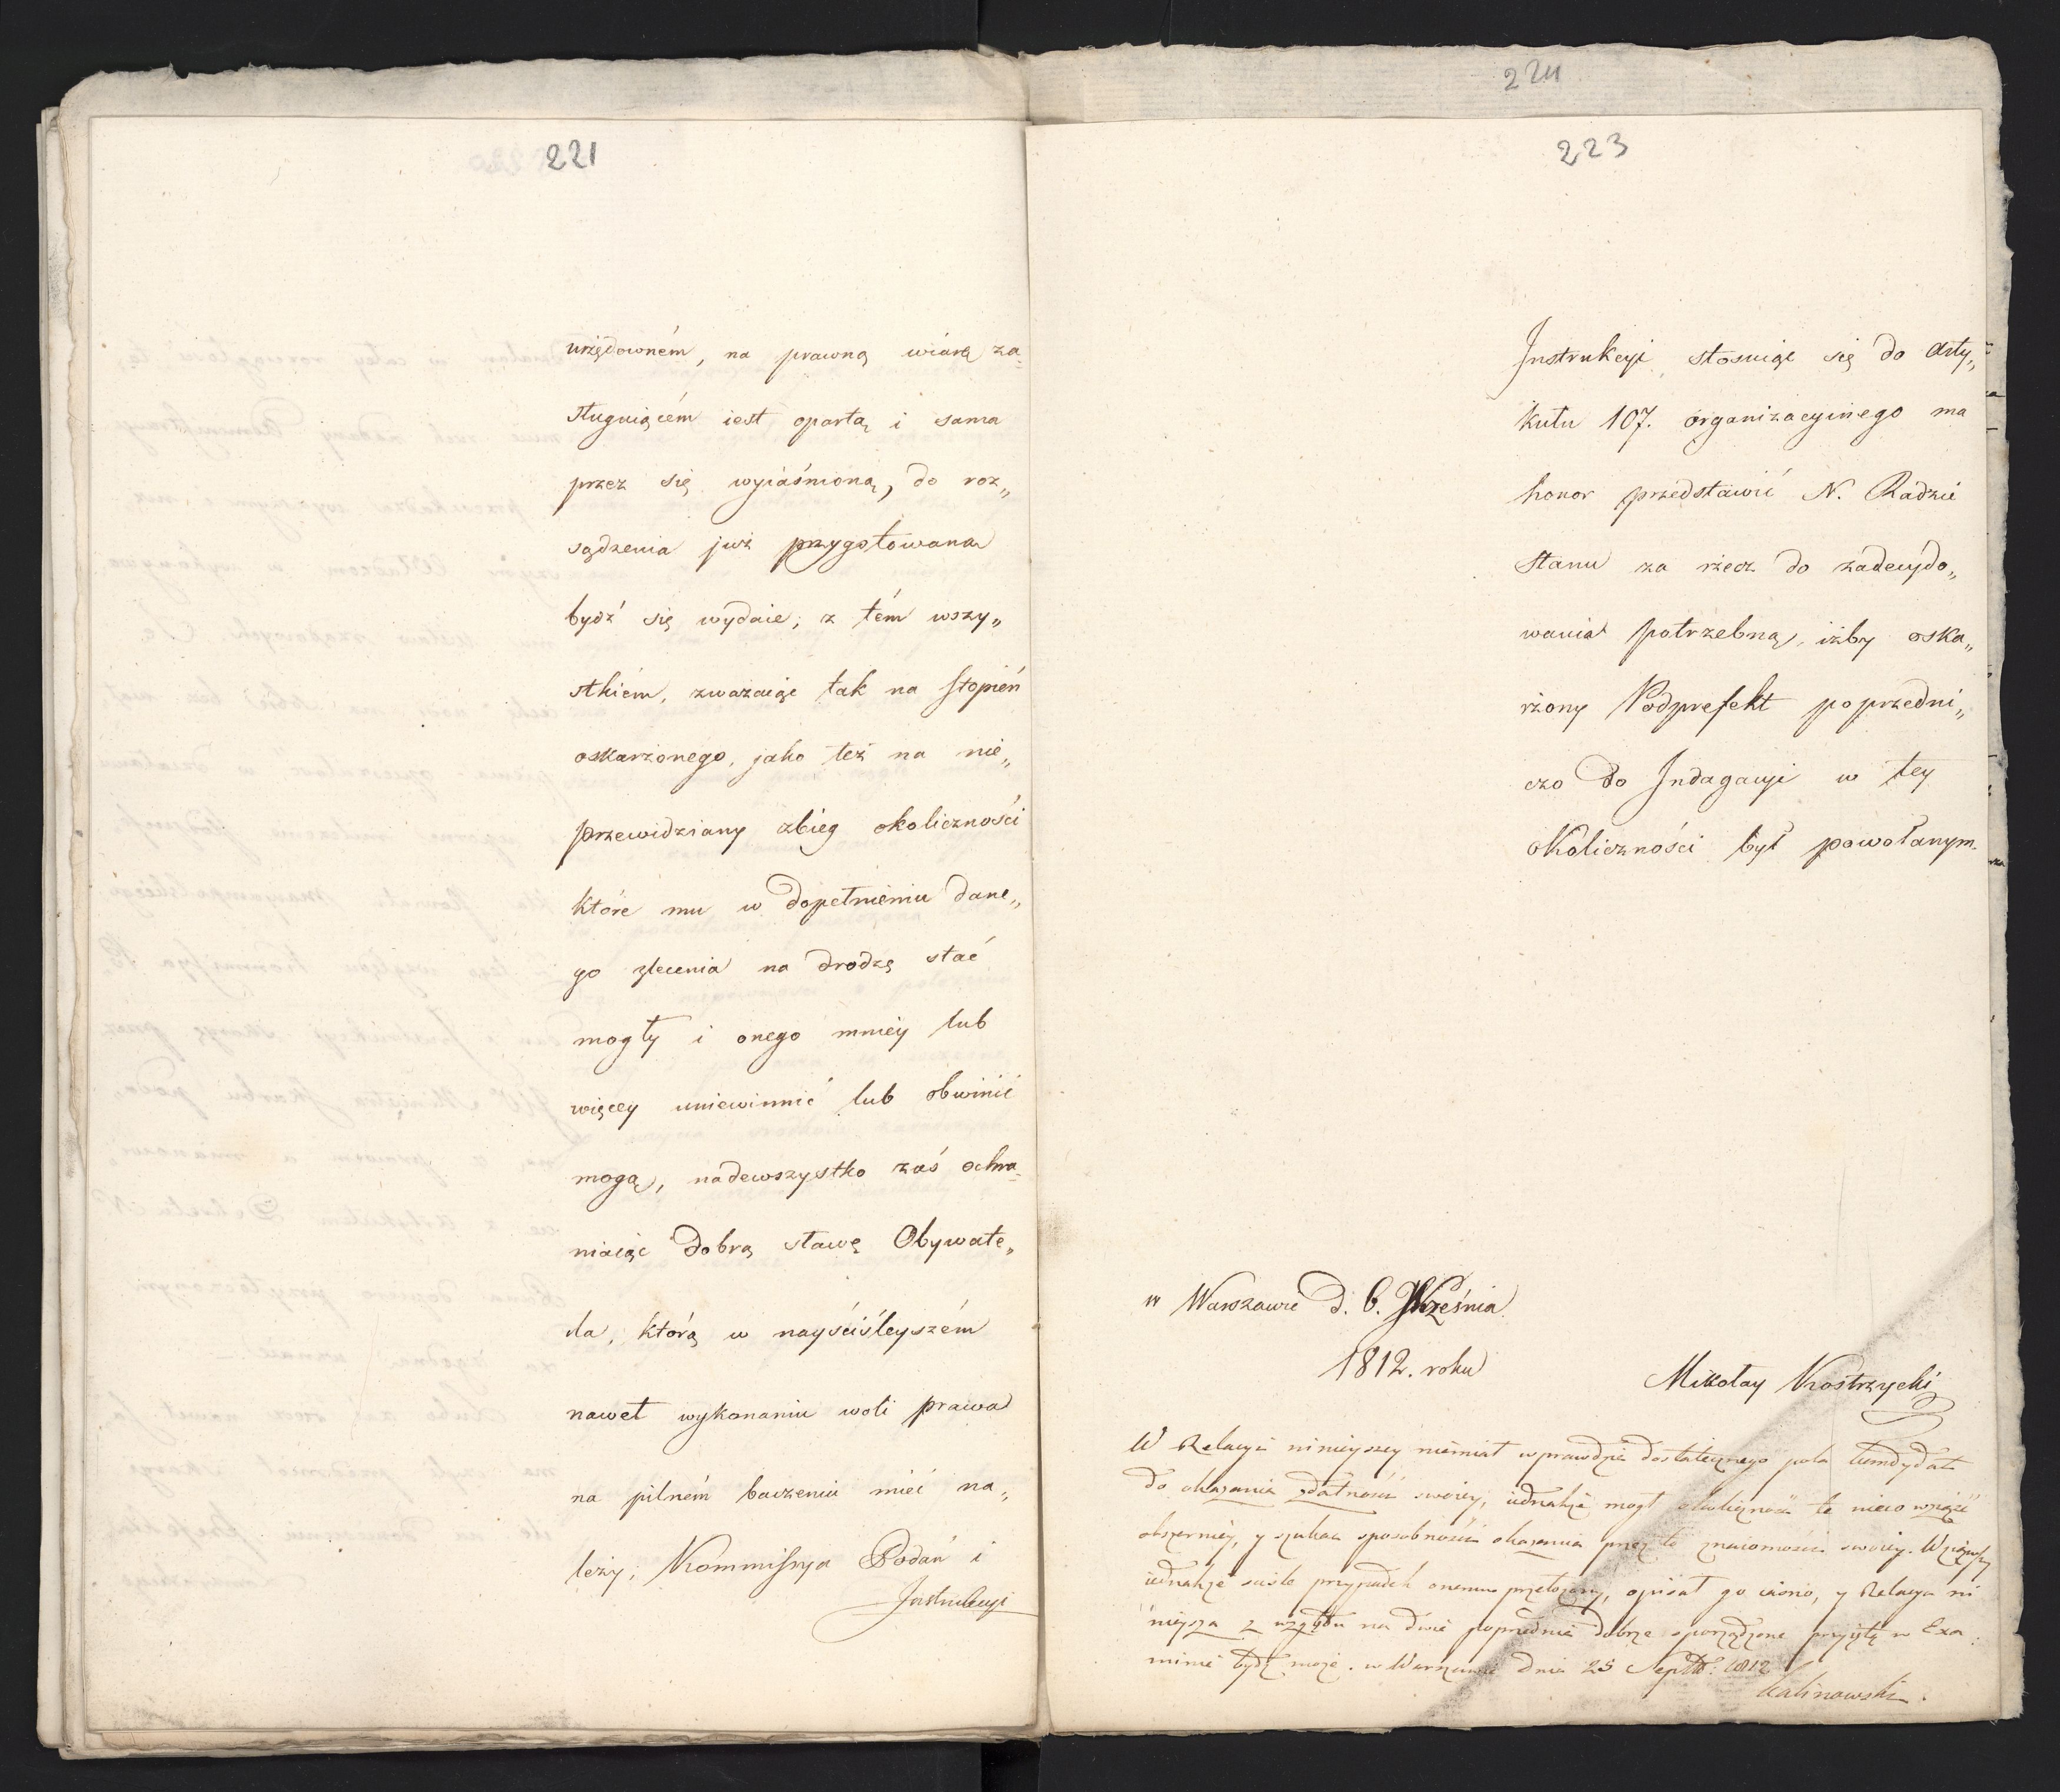 221
urzędowném, na prawną wiarę za-
sługuiącém iest opartą i sama
przez się wyiaśnioną, do roz„
sądzenia już przygotowana
bydź się wydaie; z tém wszy„
stkiém, zważaiąc tak na stopień
oskarżonego, jako też na nie„
przewidziany zbieg okoliczności
które mu w dopełnieniu dane„
go zlecenia na drodzę stać
mogły i onego mniéy lub
więcey uniewinnić lub obwinić
mogą, nadewszystko zaś ochra-
niaiąc dobrą sławę Obywate„
la, którą w nayściśleyszém
nawet wykonaniu woli prawa
na pilném baczeniu mieć na„
leży; Kommissya Podań i
Instrukcyi
224
223
Instrukcyi stosuiąc się do Arty„
kułu 107. organizacyinego ma
honor przedstawić N. Radzie
Stanu za rzecz do zadecydo„
wania potrzebną, iżby oska„
rżony Podprefekt poprzedni„
czo do Indagacyi w tey
okoliczności był powołanym.
w Warszawie d. 6. Września
1812. roku
Mikołay Kostrzycki
W Relacyi ninieyszey niemiał wprawdzie dostatecznego pola kandydat
do okazania zdatności swoiey, iednakże mógł okoliczność tę nieco wziąść
obszerniéy, y szukać sposobności okazania przez to znaiomości swoiey. Wziąwszy
iednakże ściśle przypadek onemu przełożony, opisał go iasno, y Relacya ni
nieysza z względu na dwie poprzednie dobrze sporządzone przyiętą w Exa
minie bydź może. w Warszawie dnia 25 Septbr: 1812
Kalinowski.